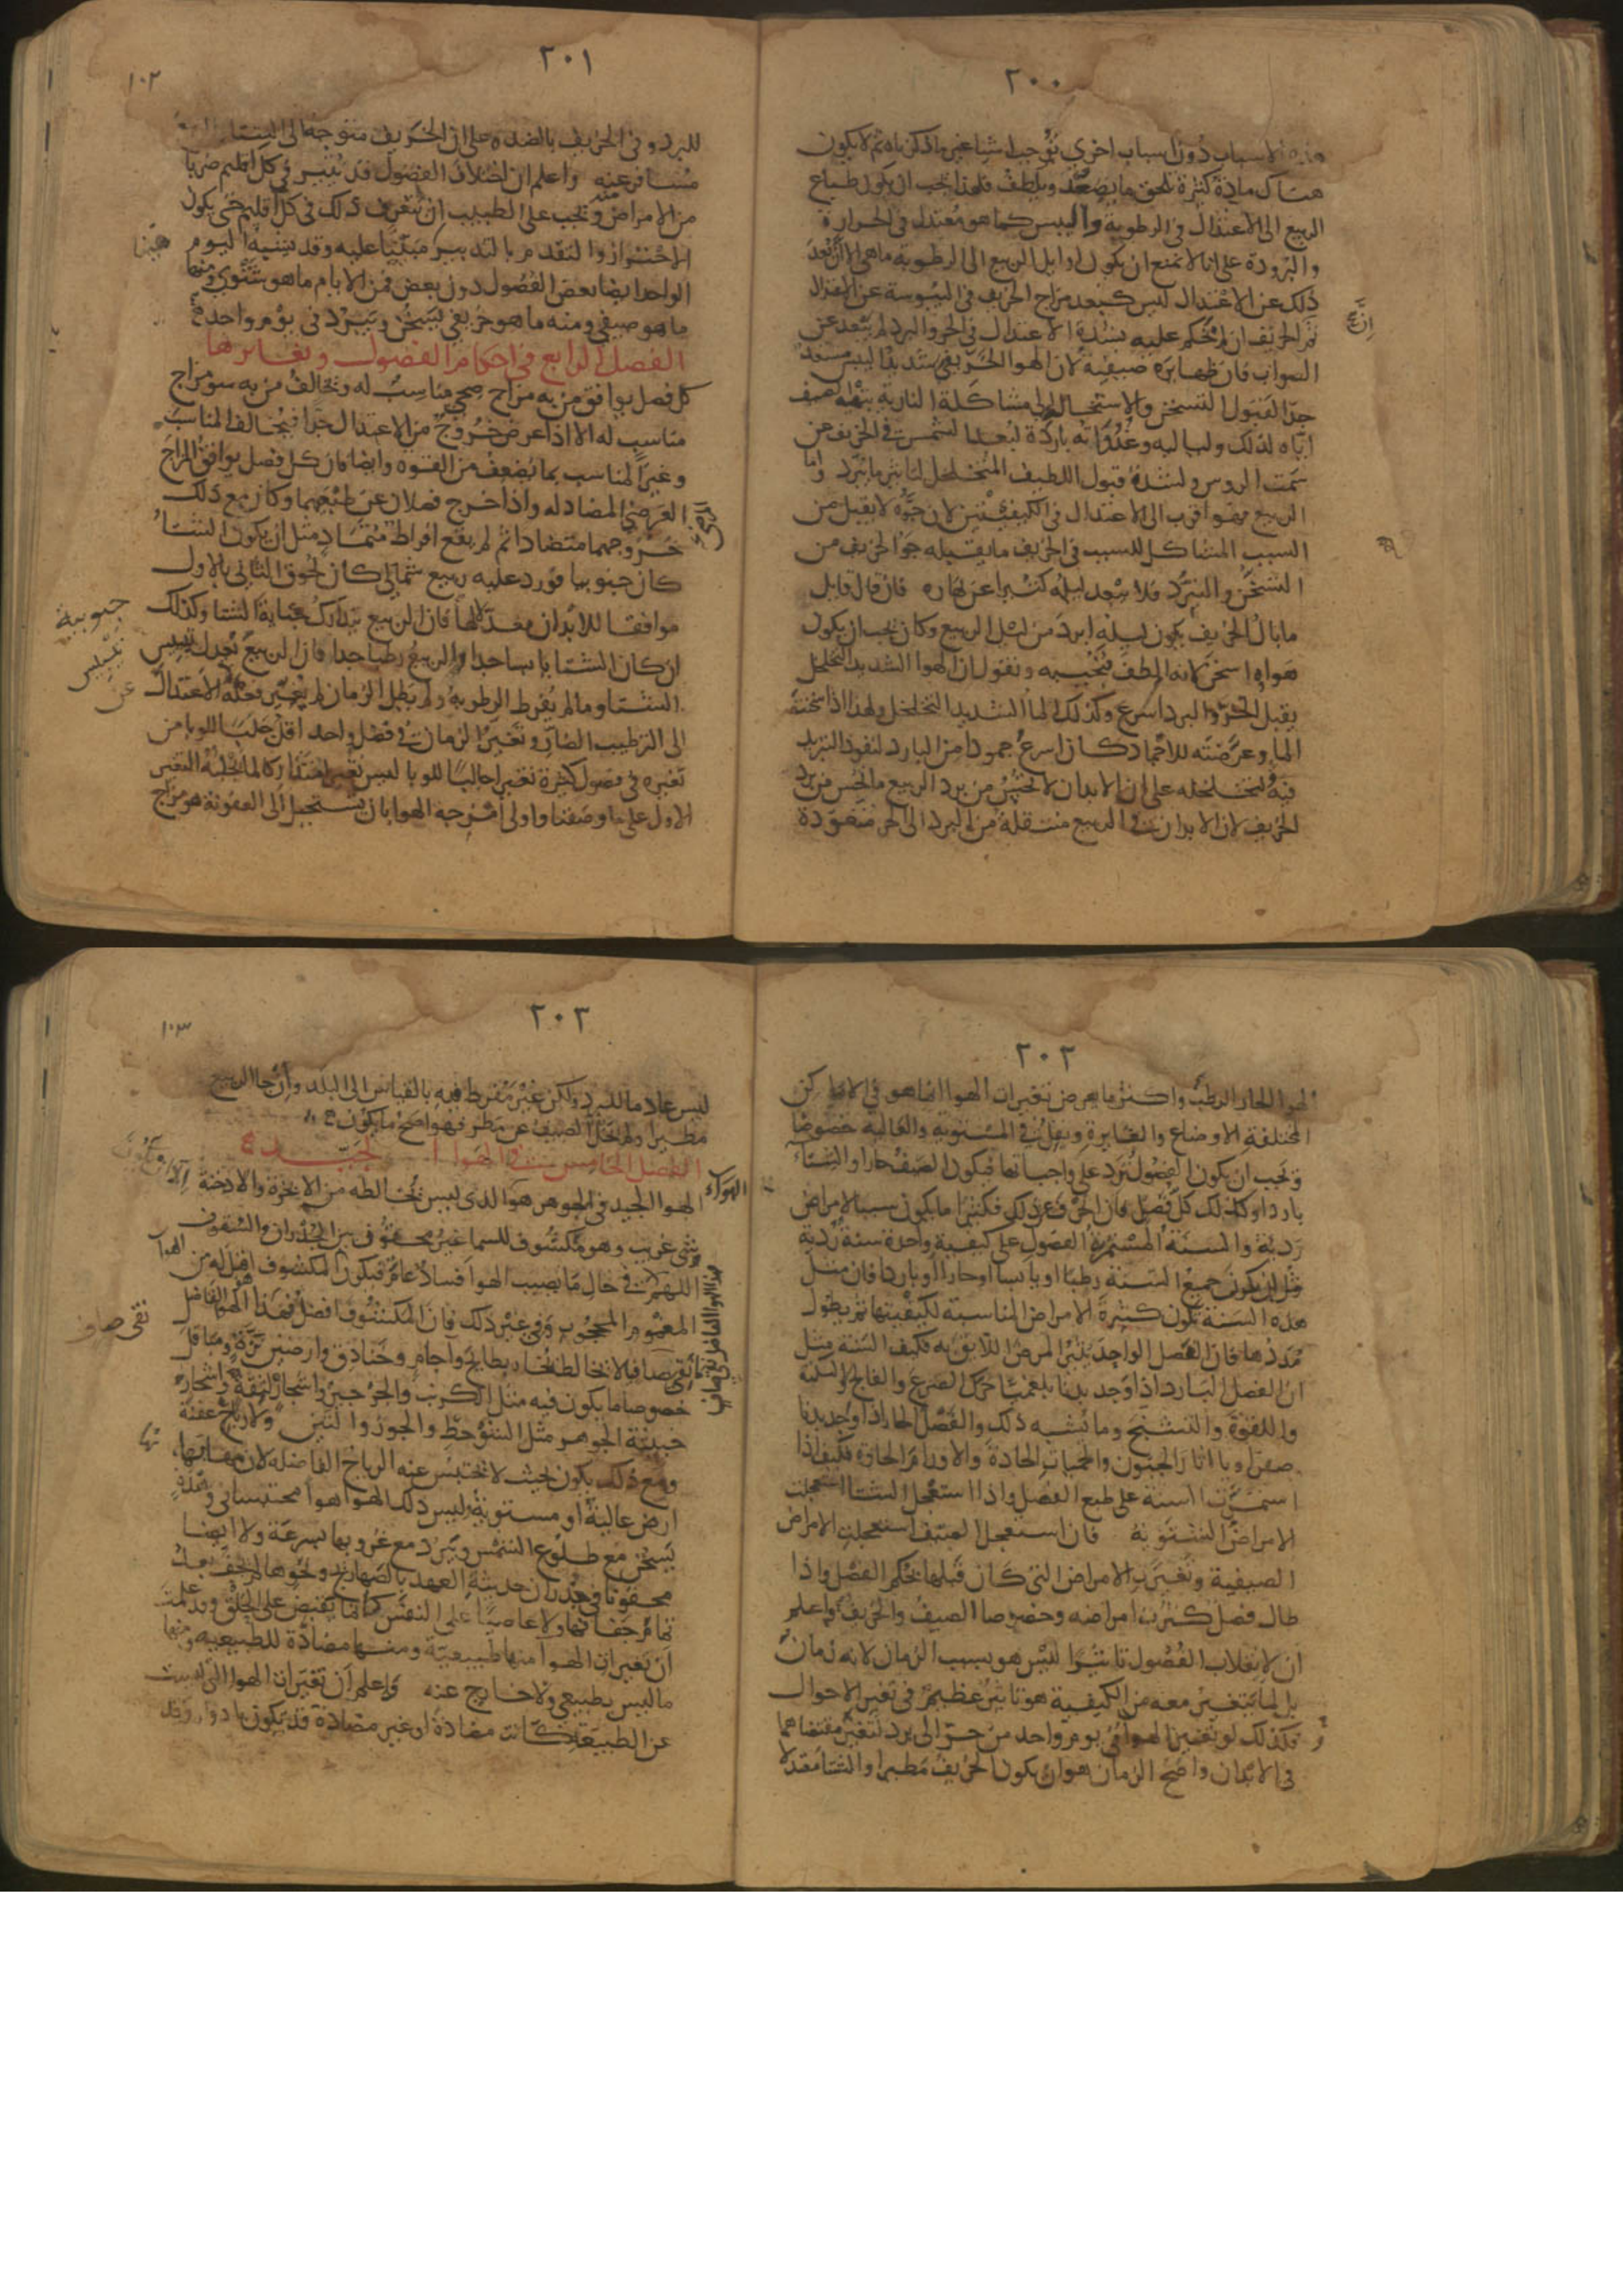 ٢٠٠
هذه الاسباب دون اسباب اخري توجب اشيا غير ما ذكرناه ثم لا يكون
هناك مادة كثيرة تلحق ما يصعد ويلطف فلهذا يجب ان يكون طباع
الربيع الى الاعتدال في الرطوبة واليبس كما هو معتدل في الحرارة
والبرودة على انا لا نمنع ان يكون اوايل الربيع الى الرطوبة ما هي الا ان بعد
ذلك عن الاعتدال ليس كبعد مزاج الخريف في اليبوسة عن الاعتدال
ثم الخريف ان لم يحكم عليه بشدة الاعتدال في الحر والبرد لم يبعد عن
الصواب فان ظهايره صيفية لان الهوا الخريفي شديد اليبس مستعد
جدا لقبول التسخن والاستحالة الى مشاكلة النارية بتهية الصيف
اياه لذلك ولياليه وغدواته باردة لبعد الشمس في الخريف عن
سمت الروس ولشدة قبول اللطيف المتخلخل لتاثير ما يبرد واما
الربيع فهو اقرب الى الاعتدال في الكيفيتين لان جوه لا يقبل من
السبب المشاكل للسبب في الخريف ما يقبله جو الخريف من
التسخن والتبرد فلا يبعد ليله كثيرا عن نهاره فان قال قايل
ما بال الخريف يكون ليله ابرد من ليل الربيع وكان يجب ان يكون
هواه اسخن لانه الطف فنجيبه ونقول ان الهوا الشديد التخلخل
يقبل الحر والبرد اسرع وكذلك الما الشديد التخلخل ولهذا اذا سخنت
الما وعرضته للاجماد كان اسرع جمودا من البارد لنفوذ التبريد
فيه لتخلخله على ان الابدان لا تحس من برد الربيع ما تحس من برد
الخريف لان الابدان في الربيع منتقلة من البرد الى الحر متعودة
٢٠١
١٠٢
للبرد وفي الخريف بالضد وعلى ان الخريف متوجه الى الشتا
مسافر عنه واعلم ان اختلاف الفصول قد يثير في كل اقليم ضربا
من الامراض ويجب على الطبيب ان يتعرف ذلك في كل اقليم حتى يكون
الاحتراز والتقدم بالتدبير مبنيا عليه وقد يشبه اليوم
الواحد ايضا بعض الفصول دون بعض فمن الايام ما هو شتوي ومنها
ما هو صيفي ومنه ما هو خريفي يسخن ويبرد في يوم واحد
الفصل الرابع في احكام الفصول وتغايرها
كل فصل يوافق من به مزاج صحي مناسب له ويخالف من به سو مزاج
مناسب له الا اذا عرض خروج من الاعتدال جدا فيخالف المناسب
وغير المناسب بما يضعف من القوه وايضا فان كل فصل يوافق المزاج
العرضي المضاد له واذا خرج فصلان عن طبعهما وكان مع ذلك
خروجهما متضادا ثم لم يقع افراط متماد مثل ان يكون الشتا
كان جنوبيا فورد عليه ربيع شمالي كان لحوق الثاني بالاول
موافقا للابدان معدلا لها فان الربيع يتدارك جناية الشتا وكذلك
ان كان الشتا يابسا جدا والربيع رطبا جدا فان الربيع يعدل يبس
الشتا وما لم يفرط الرطوبة ولم يطل الزمان لم يتغير فعله عن الاعتدال
الى الترطيب الضار وتغير الزمان في فصل واحد اقل جلبا للوبا من
تغيره في فصول كثيرة تغيرا جالبا للوبا ليس تغيرا متداركا لما جلبه التغير
الاول على ما وصفنا واولى امزجة الهوا بان يستحيل الى العفونة هو مزاج
جنوبية
٢٠٢
الهوا الحار الرطب واكثر ما يعرض تغيرات الهوا انما هو في الاماكن
المختلفة الاوضاع والغايرة ويقل في المستوية والعالية خصوصا
ويجب ان يكون الفصول ترد على واجباتها فيكون الصيف حارا والشتاء
باردا وكذلك كل فصل فان انخرق عن ذلك فكثيرا ما يكون سببا لامراض
ردية والسنة المستمرة الفصول على كيفية واحدة سنة ردية
مثل ان يكون جميع السنة رطبا او يابسا او حارا او باردا فان مثل
هذه السنة تكون كثيرة الامراض المناسبة لكيفيتها ثم يطول
مددها فان الفصل الواحد يثير المرض اللائق به فكيف السنة مثل
ان الفصل البارد اذا وجد بدنا بلغميا حرك الصرع والفالج والسكتة
واللقوة والتشنج وما يشبه ذلك والفصل الحار اذا وجد بدنا
صفراويا اثار الجنون والحميات الحادة والاورام الحارة فكيف اذا
استمرت السنة على طبع الفصل واذا استعجل الشتا استعجلت
الامراض الشتوية فان استعجل الصيف استعجلت الامراض
الصيفية وتغيرت الامراض التي كان قبلها بحكم الفصل واذا
طال فصل كثرت امراضه وخصوصا الصيف والخريف واعلم
ان لانقلاب الفصول تاثيرا ليس هو بسبب الزمان لانه زمان
بل لما يتغير معه من الكيفية هو تاثير عظيم في تغير الاحوال
وكذلك لو تغير الهوا في يوم واحد من حر الى برد لتغير مقتضاهما
في الابدان واصح الزمان هو ان يكون الخريف مطيرا والشتا معتدلا
٢٠٣
١٠٣
ليس عادما للبرد ولكن غير مفرط فيه بالقياس الى البلد وان جا الربيع
مطيرا ولم يخل الصيف عن مطر فهو اصح ما يكون
الفصل الخامس في الهوا الجيد
الهوا الجيد في الجوهر هو الذي ليس يخالطه من الابخرة والادخنة
شي غريب وهو مكشوف للسما غير محقوف بين الجدران والسقوف
اللهم الا في حال ما يصيب الهوا فساد عام فيكون المكشوف اقبل له من
المغموم والمحجوب وفي غير ذلك فان المكشوف افضل فهذا الهوا الفاضل
نقي صاف لا يخالطه بخار بطايح وآجام وخنادق وارضين نزة ومباقل
خصوصا ما يكون فيه مثل الكرنب والجرجير واشجار
خبيثة الجوهر مثل الشوحط والجوز والتين ولا رياح عفنة
ومع ذلك يكون بحيث لا يحتبس عنه الرياح الفاضله لان مهابها
ارض عالية او مستوية فليس ذلك الهوا هوا محتبسا في وهدة
يسخن مع طلوع الشمس ويبرد مع غروبها بسرعة ولا ايضا
محقونا في جدران حديثة العهد بالصهاريج ونحوها لم يجف بعد
تمام جفافها ولا عاصيا على النفس كانما يقبض على الحلق وقد علمت
ان تغيرات الهوا منها طبيعية ومنها مضادة للطبيعيه ومنها
ما ليس بطبيعي ولا خارج عنه واعلم ان تغيرات الهوا التي ليست
عن الطبيعة كانت مضادة او غير مضادة قد يكون بادوار وقد
الهواء
نقي صاف